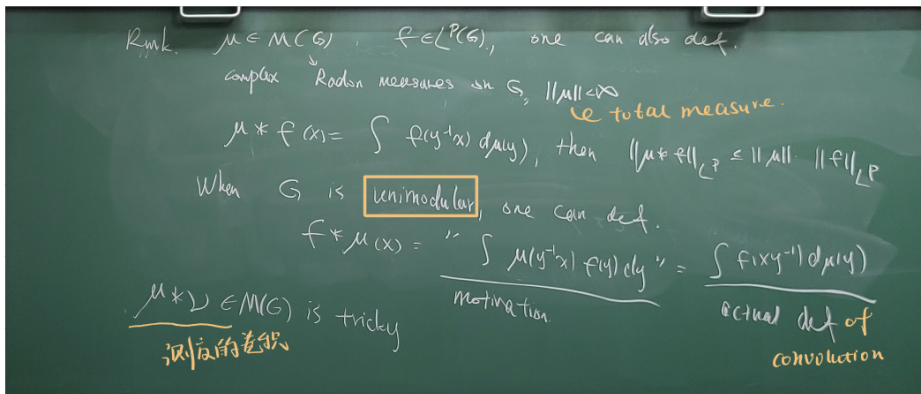 Rmk. μ ∈ M(G), f ∈ L^p(G), one can also def.
complex Radon measures on G, ||μ|| < ∞
total measure.
μ * f(x) = ∫ f(y⁻¹x) dμ(y), then ||μ * f||_{L^p} ≤ ||μ|| · ||f||_{L^p}
When G is unimodular, one can def.
f * μ(x) = " ∫ μ(y⁻¹x) f(y) dy " = ∫ f(xy⁻¹) dμ(y)
motivation
actual def of convolution
μ * ν ∈ M(G) is tricky
测度的卷积